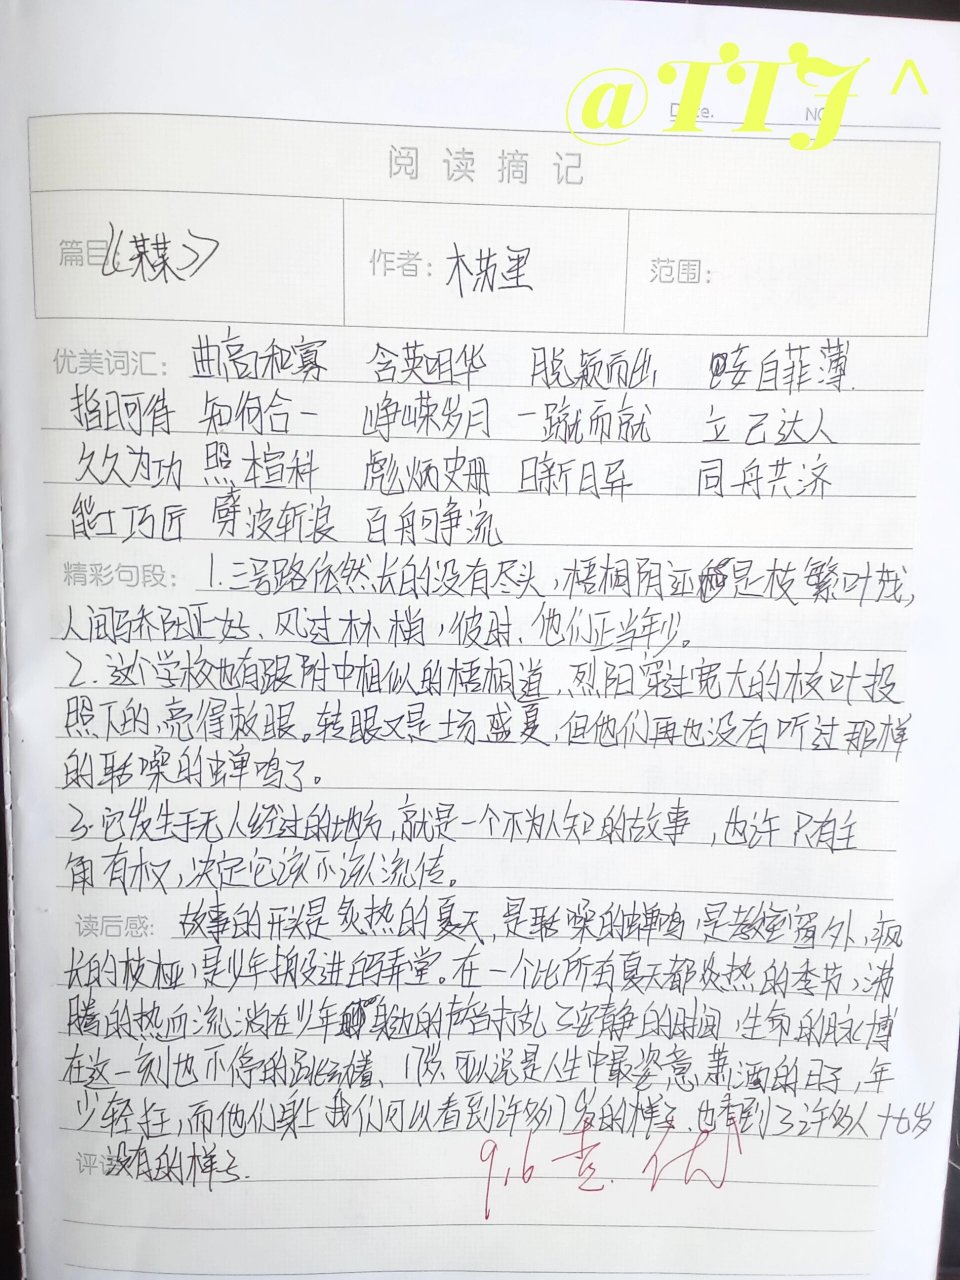 @TTJ^
Date.
NO
阅读摘记
篇目:《某某》 作者:木苏里 范围:
优美词汇: 曲高和寡 含英咀华 脱颖而出 妄自菲薄
指日可待 知行合一 峥嵘岁月 一蹴而就 立己达人
久久为功 照本宣科 彪炳史册 日新日异 同舟共济
能工巧匠 劈波斩浪 百舸争流
精彩句段: 1.三号路依然长的没有尽头,梧桐阴还是枝繁叶茂,
人间骄阳正好、风过林梢,彼时、他们正当年少。
2.这个学校也有跟附中相似的梧桐道,烈阳穿过宽大的枝叶投
照下的,亮得刺眼。转眼又是一场盛夏,但他们再也没有听过那样
的聒噪的蝉鸣了。
3.它发生于无人经过的地方,就是一个不为人知的故事,也许只有主
角有权,决定它该不该流传。
读后感: 故事的开头是炙热的夏天,是聒噪的蝉鸣,是教室窗外,疯
长的枝桠,是少年撞进的弄堂。在一个比所有夏天都炎热的季节,沸
腾的热血流淌在少年身边的声音打乱了安静的时间,生命的脉搏
在这一刻也不停的跳动着、17岁、可以说是人生中最姿意萧洒的日子,年
少轻狂,而他们身上我们可以看到许多17岁的样子、也看到了许多人十七岁
评语: 没有的样子.
9.6 查. 优